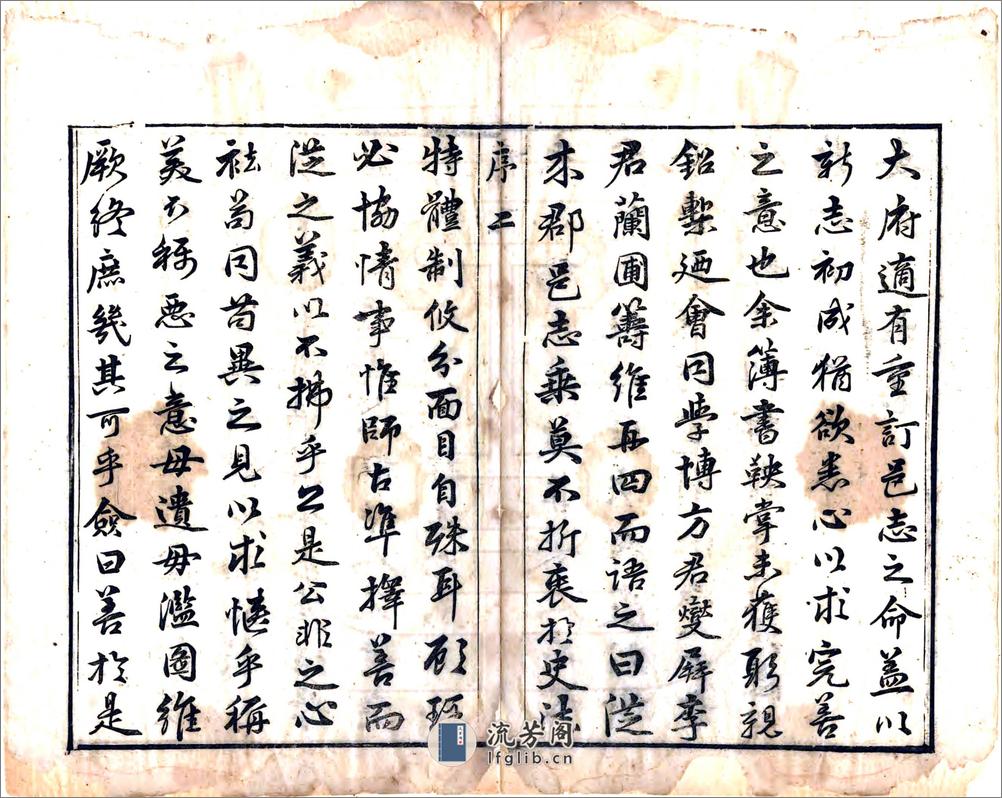 大府適有重訂邑志之命蓋以
新志初成猶欲悉心以求完善
之意也余簿書鞅掌未獲躬親
鉛槧廼會同學博方君燮屏李
君蘭圃籌維再四而語之曰從
來郡邑志乘莫不折衷於史法
序 二
特體制攸分面目自殊耳顧
必協情事惟師古準擇善而
從之義以不拂乎公是公非之心
祛苟同苟異之見以求愜乎稱
美不稱惡之意毋遺毋濫圖維
厥終庶幾其可乎僉曰善於是
流芳阁
lfglib.cn